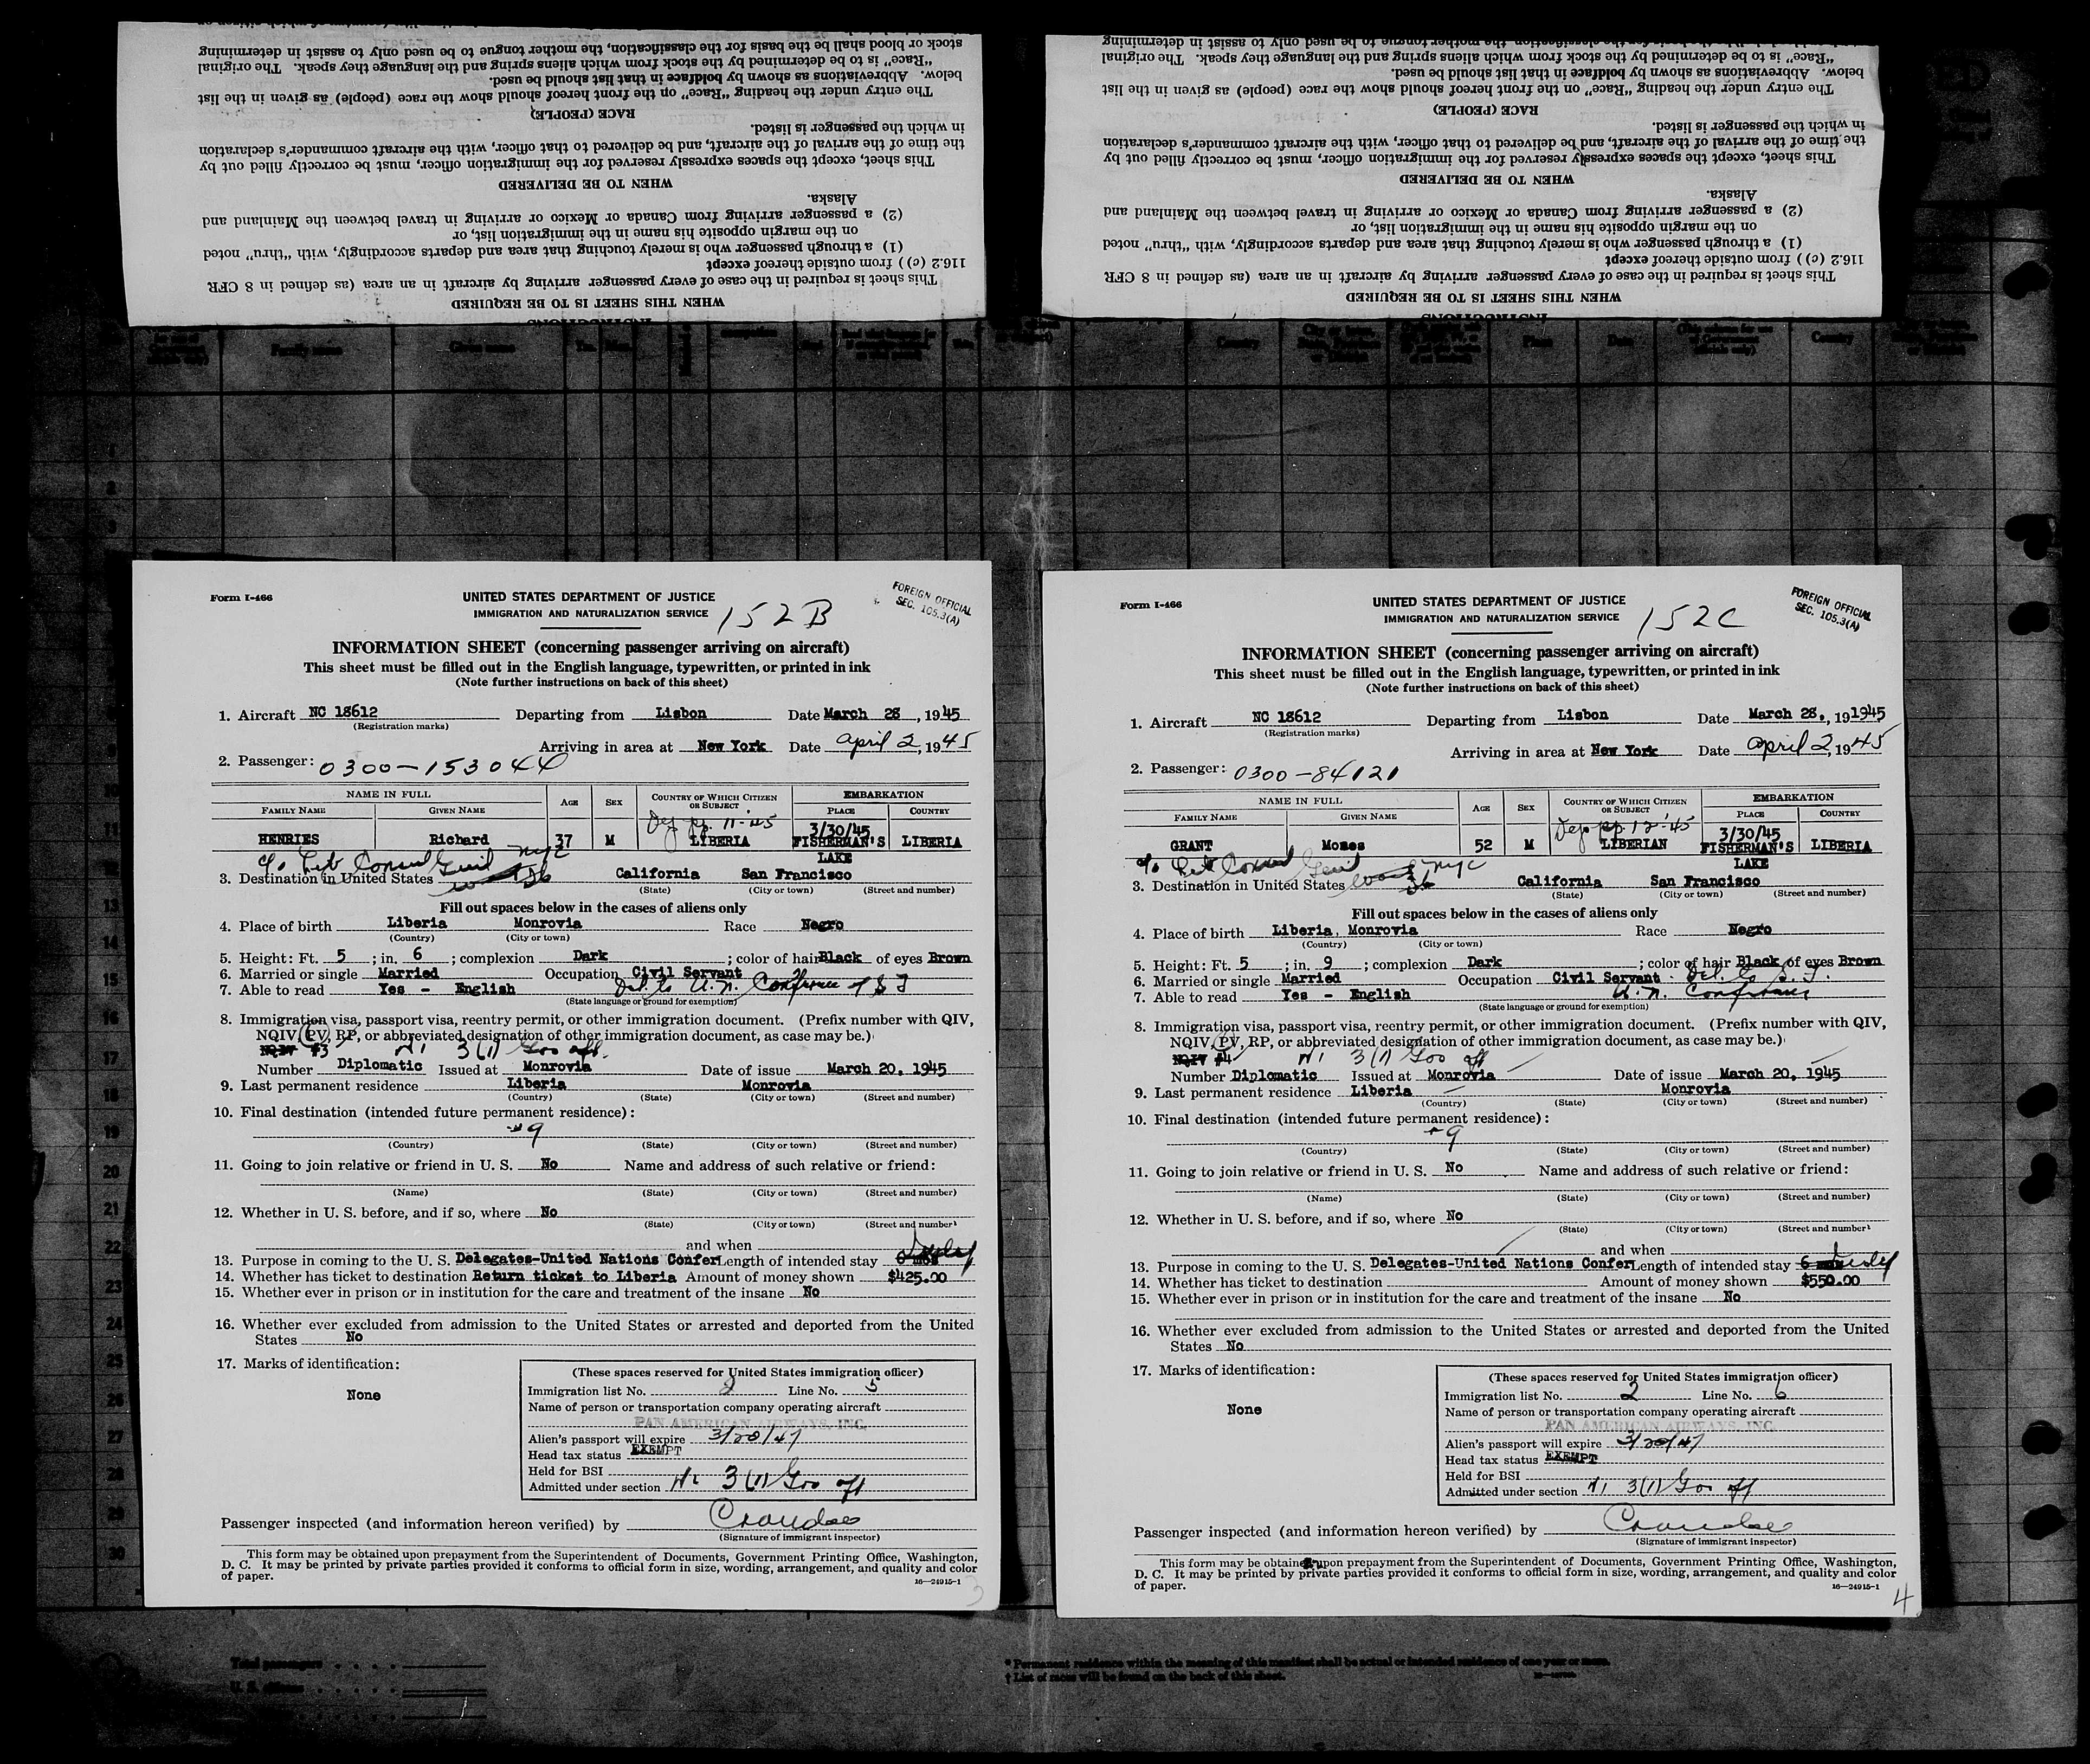 INSTRUCTIONS
WHEN THIS SHEET IS TO BE REQUIRED
This sheet is required in the case of every passenger arriving by aircraft in an area (as defined in 8 CFR
116.2 (c)) from outside thereof except
(1) a through passenger who is merely touching that area and departs accordingly, with "thru" noted
on the margin opposite his name in the immigration list, or
(2) a passenger arriving from Canada or Mexico or arriving in travel between the Mainland and
Alaska.
WHEN TO BE DELIVERED
This sheet, except the spaces expressly reserved for the immigration officer, must be correctly filled out by
the time of the arrival of the aircraft, and be delivered to that officer, with the aircraft commander's declaration
in which the passenger is listed.
RACE (PEOPLE)
The entry under the heading "Race" on the front hereof should show the race (people) as given in the list
below. Abbreviations as shown by boldface in that list should be used.
"Race" is to be determined by the stock from which aliens spring and the language they speak. The original
stock or blood shall be the basis for the classification, the mother tongue to be used only to assist in determining
INSTRUCTIONS
WHEN THIS SHEET IS TO BE REQUIRED
This sheet is required in the case of every passenger arriving by aircraft in an area (as defined in 8 CFR
116.2 (c)) from outside thereof except
(1) a through passenger who is merely touching that area and departs accordingly, with "thru" noted
on the margin opposite his name in the immigration list, or
(2) a passenger arriving from Canada or Mexico or arriving in travel between the Mainland and
Alaska.
WHEN TO BE DELIVERED
This sheet, except the spaces expressly reserved for the immigration officer, must be correctly filled out by
the time of the arrival of the aircraft, and be delivered to that officer, with the aircraft commander's declaration
in which the passenger is listed.
RACE (PEOPLE)
The entry under the heading "Race" on the front hereof should show the race (people) as given in the list
below. Abbreviations as shown by boldface in that list should be used.
"Race" is to be determined by the stock from which aliens spring and the language they speak. The original
stock or blood shall be the basis for the classification, the mother tongue to be used only to assist in determining
Family name Given name
Country Place Date Country
Form I-466
UNITED STATES DEPARTMENT OF JUSTICE
IMMIGRATION AND NATURALIZATION SERVICE
152B
FOREIGN OFFICIAL
SEC. 105.3(A)
INFORMATION SHEET (concerning passenger arriving on aircraft)
This sheet must be filled out in the English language, typewritten, or printed in ink
(Note further instructions on back of this sheet)
1. Aircraft NC 18612 Departing from Lisbon Date March 28, 1945
(Registration marks)
Arriving in area at New York Date April 2, 1945
2. Passenger: 0300-153044
NAME IN FULL AGE SEX COUNTRY OF WHICH CITIZEN OR SUBJECT EMBARKATION
FAMILY NAME GIVEN NAME PLACE COUNTRY
HENRIES Richard 37 M LIBERIA 3/30/45 FISHERMAN'S LAKE LIBERIA
c/o Lib Consul Genl NYC
3. Destination in United States California San Francisco
(State) (City or town) (Street and number)
Fill out spaces below in the cases of aliens only
4. Place of birth Liberia Monrovia Race Negro
(Country) (City or town)
5. Height: Ft. 5 ; in. 6 ; complexion Dark ; color of hair Black of eyes Brown
6. Married or single Married Occupation Civil Servant
Del. to U.N. Conference
7. Able to read Yes - English
(State language or ground for exemption)
8. Immigration visa, passport visa, reentry permit, or other immigration document. (Prefix number with QIV,
NQIV, PV, RP, or abbreviated designation of other immigration document, as case may be.)
NQIV #3 3(1) Gov off.
Number Diplomatic Issued at Monrovia Date of issue March 20, 1945
9. Last permanent residence Liberia Monrovia
(Country) (State) (City or town) (Street and number)
10. Final destination (intended future permanent residence):
9
(Country) (State) (City or town) (Street and number)
11. Going to join relative or friend in U. S. No Name and address of such relative or friend:
(Name) (State) (City or town) (Street and number)
12. Whether in U. S. before, and if so, where No
(State) (City or town) (Street and number)
and when
13. Purpose in coming to the U. S. Delegates-United Nations Confer Length of intended stay 6 mos
14. Whether has ticket to destination Return ticket to Liberia Amount of money shown $425.00
15. Whether ever in prison or in institution for the care and treatment of the insane No
16. Whether ever excluded from admission to the United States or arrested and deported from the United
States No
17. Marks of identification:
None
(These spaces reserved for United States immigration officer)
Immigration list No. 2 Line No. 5
Name of person or transportation company operating aircraft
PAN AMERICAN AIRWAYS, INC.
Alien's passport will expire 3/20/47
Head tax status EXEMPT
Held for BSI
Admitted under section 3(1) Gov off
Passenger inspected (and information hereon verified) by
(Signature of immigrant inspector)
This form may be obtained upon prepayment from the Superintendent of Documents, Government Printing Office, Washington,
D. C. It may be printed by private parties provided it conforms to official form in size, wording, arrangement, and quality and color
of paper.
16—24915-1
3
Form I-466
UNITED STATES DEPARTMENT OF JUSTICE
IMMIGRATION AND NATURALIZATION SERVICE
152C
FOREIGN OFFICIAL
SEC. 105.3(A)
INFORMATION SHEET (concerning passenger arriving on aircraft)
This sheet must be filled out in the English language, typewritten, or printed in ink
(Note further instructions on back of this sheet)
1. Aircraft NC 18612 Departing from Lisbon Date March 28., 191945
(Registration marks)
Arriving in area at New York Date April 2, 1945
2. Passenger: 0300-84121
NAME IN FULL AGE SEX COUNTRY OF WHICH CITIZEN OR SUBJECT EMBARKATION
FAMILY NAME GIVEN NAME PLACE COUNTRY
GRANT Moses 52 M LIBERIAN 3/30/45 FISHERMAN'S LAKE LIBERIA
c/o Lib Consul Genl NYC
3. Destination in United States California San Francisco
(State) (City or town) (Street and number)
Fill out spaces below in the cases of aliens only
4. Place of birth Liberia, Monrovia Race Negro
(Country) (City or town)
5. Height: Ft. 5 ; in. 9 ; complexion Dark ; color of hair Black of eyes Brown
6. Married or single Married Occupation Civil Servant Del. to S.F.
U.N. Conference
7. Able to read Yes - English
(State language or ground for exemption)
8. Immigration visa, passport visa, reentry permit, or other immigration document. (Prefix number with QIV,
NQIV, PV, RP, or abbreviated designation of other immigration document, as case may be.)
NQIV #4 3(1) Gov off
Number Diplomatic Issued at Monrovia Date of issue March 20, 1945
9. Last permanent residence Liberia Monrovia
(Country) (State) (City or town) (Street and number)
10. Final destination (intended future permanent residence):
9
(Country) (State) (City or town) (Street and number)
11. Going to join relative or friend in U. S. No Name and address of such relative or friend:
(Name) (State) (City or town) (Street and number)
12. Whether in U. S. before, and if so, where No
(State) (City or town) (Street and number)
and when
13. Purpose in coming to the U. S. Delegates-United Nations Confer Length of intended stay 6
14. Whether has ticket to destination Amount of money shown $550.00
15. Whether ever in prison or in institution for the care and treatment of the insane No
16. Whether ever excluded from admission to the United States or arrested and deported from the United
States No
17. Marks of identification:
None
(These spaces reserved for United States immigration officer)
Immigration list No. 2 Line No. 6
Name of person or transportation company operating aircraft
PAN AMERICAN AIRWAYS, INC.
Alien's passport will expire 3/20/47
Head tax status EXEMPT
Held for BSI
Admitted under section 3(1) Gov off
Passenger inspected (and information hereon verified) by
(Signature of immigrant inspector)
This form may be obtained upon prepayment from the Superintendent of Documents, Government Printing Office, Washington,
D. C. It may be printed by private parties provided it conforms to official form in size, wording, arrangement, and quality and color
of paper.
16—24915-1
4
Total passengers
U. S. citizens
* Permanent residence within the meaning of this manifest shall be actual or intended residence of one year or more.
† List of races will be found on the back of this sheet.